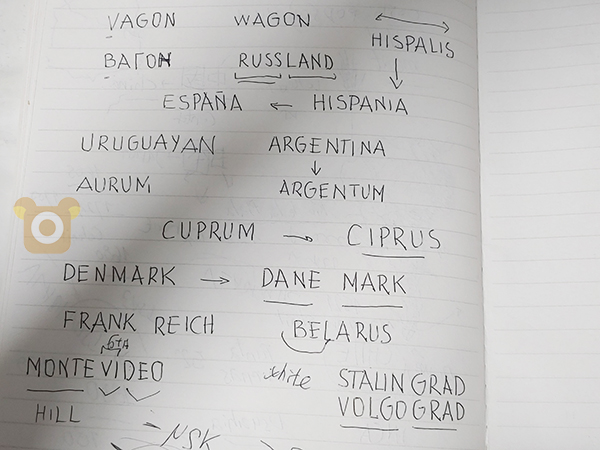 VAGON WAGON
HISPALIS
ВАГОН RUSSLAND
ESPAÑA ← HISPANIA
URUGUAYAN ARGENTINA
AURUM ARGENTUM
CUPRUM → CIPRUS
DENMARK → DANE MARK
FRANK REICH BELARUS
6TH
MONTEVIDEO white STALINGRAD
HILL VOLGOGRAD
NSK